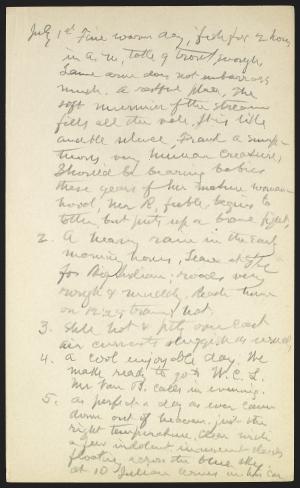 July 1st Fine warm day, fish for 2 hours
in a. m., take 9 trout,
Lame arm does not embarrass
much. A restful place, the
soft murmur of the stream
fills all the vale. It is like
audible silence. Frank a
very human creature,
Should be bearing babies
these years of her mature woman-
hood. Mr R. feeble, begins to
totter but puts up a brave fight,
2. A heavy rain in the early
morning hours, Leave at
for Big Indian; roads very
rough & muddy. Reach home
on 12.29 train, hot.
3. Still hot & partly overcast
air currents sluggish as usual,
4. A cool enjoyable day, We
make ready to go to W. C. L.
Mr Van B. calls in evening.
5. As perfect a day as ever came
down out of heaven, just the
right temperature, clear with
a few indolent innocent clouds
floating across the blue sky
at 10 Julian comes in his car